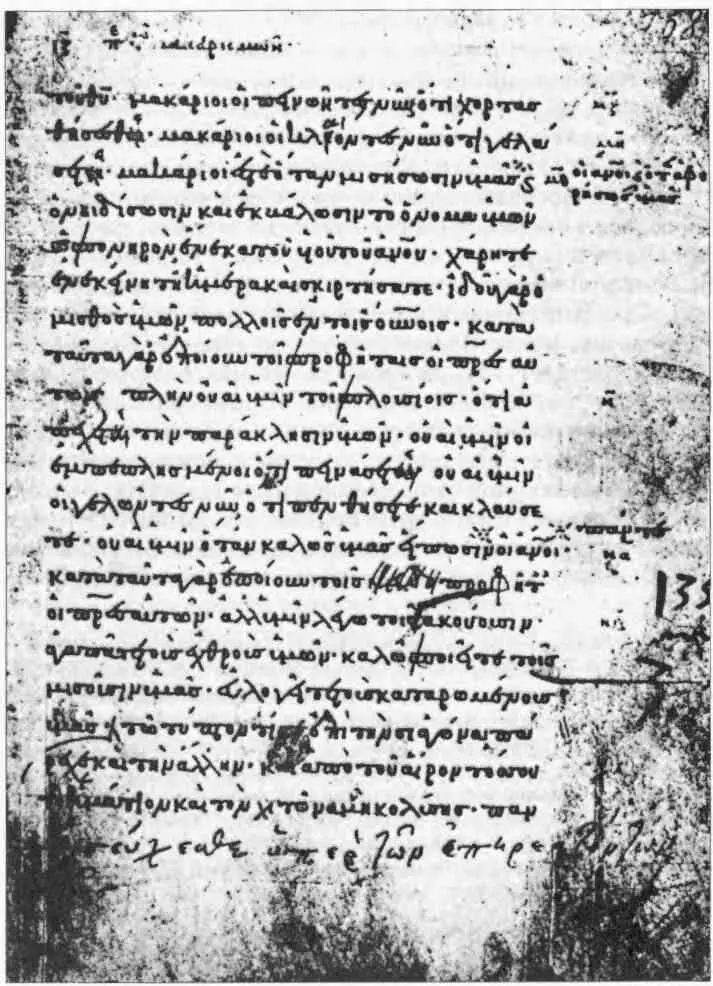 μακαρισμῶν
τοῦ θῦ· μακάριοι οἱ πεινῶντες νῦν ὅτι χορτασ
θήσεσθε· μακάριοι οἱ κλαίοντες νῦν ὅτι γελά
σετε· μακάριοι ἐστε ὅταν μισήσωσιν ὑμᾶς οἱ ἄνοι κ ὅταν ἀφο
ρίσωσιν ὑμᾶς
ὀνειδίσωσιν καὶ ἐκβάλωσιν τὸ ὄνομα ὑμῶν
ὡς πονηρὸν ἕνεκα τοῦ υἱοῦ τοῦ ἀνου· χάρητε
ἐν ἐκείνη τῆ ἡμέρα καὶ σκιρτήσατε· ἰδοὺ γὰρ ὁ
μισθὸς ὑμῶν πολλοις ἐν τοῖς οὐνοις· κατὰ
ταῦτα γὰρ ἐποίουν τοῖς προφήταις οἱ πρσ αυ
τῶν πλὴν οὐαὶ ὑμῖν τοῖς πλουσίοις· ὅτι ἀ
πέχετε τὴν παράκλησιν ὑμῶν· οὐαὶ ὑμῖν οἱ
ἐμπεπλησμένοι ὅτι πεινάσετε οὐαὶ ὑμῖν
οἱ γελῶντες νῦν ὅτι πενθήσετε καὶ κλαύσε
τε· οὐαὶ ὑμῖν ὅταν καλῶς ὑμᾶς εἴπωσιν οἱ ἄνοι·
κατὰ ταῦτα γὰρ ἐποίουν τοῖς προφητ
οἱ πρσ αὐτῶν· ἀλλ ὑμῖν λέγω τοῖς ἀκούουσιν·
ἀγαπᾶτε τοὺς ἐχθροὺς ὑμῶν· καλῶς ποιεῖτε τοῖς
μισοῦσιν ὑμᾶς· εὐλογεῖτε τοὺς καταρωμένους
ὑμᾶς τῶ τύπτοντί ἐπὶ τὴν σιαγόνα πά
ρεχε καὶ τὴν ἄλλην· καὶ ἀπὸ τοῦ αἴροντός σου
τὸ ἱμάτιον καὶ τὸν χιτῶνα μὴ κολύσης· παν
εύχεσθε ὑπὲρ τῶν